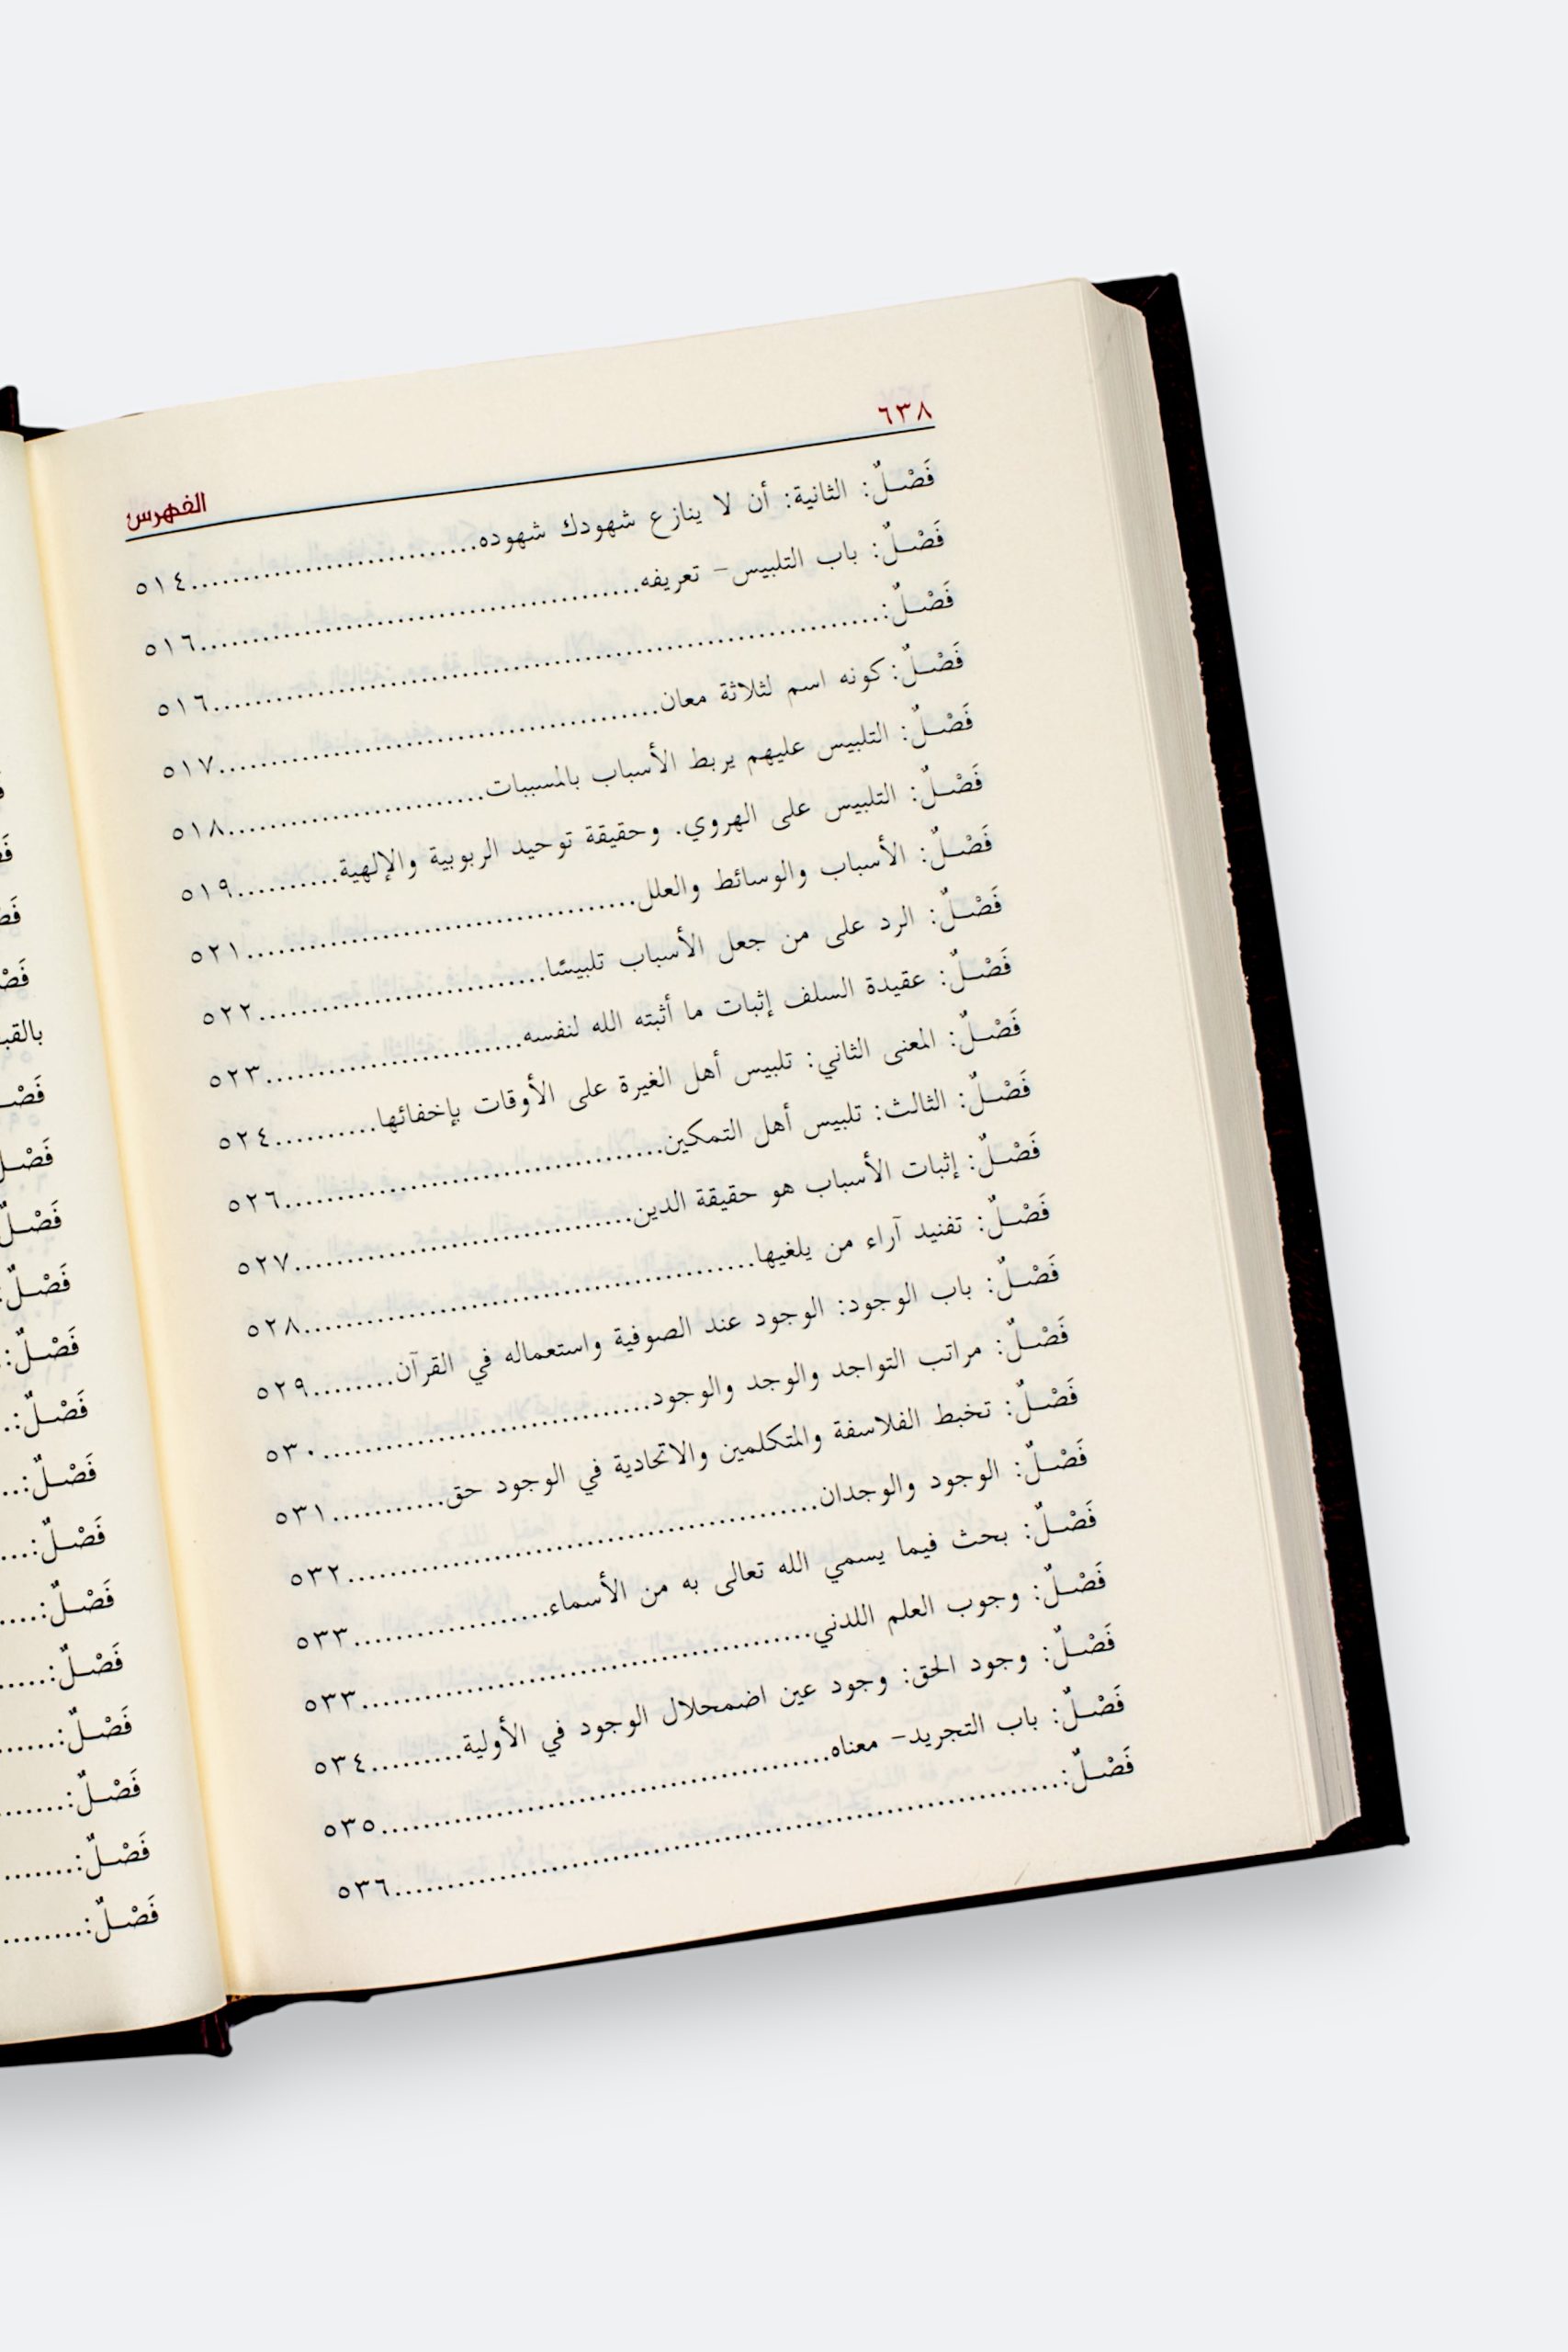 ٦٣٨
الفهرس
فَصْلٌ: الثانية: أن لا ينازع شهودك شهوده............................٥١٤
فَصْلٌ: باب التلبيس- تعريفه..........................................٥١٦
فَصْلٌ:................................................................٥١٦
فَصْلٌ: كونه اسم لثلاثة معان..........................................٥١٧
فَصْلٌ: التلبيس عليهم يربط الأسباب بالمسببات.........................٥١٨
فَصْلٌ: التلبيس على الهروي. وحقيقة توحيد الربوبية والإلهية..........٥١٩
فَصْلٌ: الأسباب والوسائط والعلل......................................٥٢١
فَصْلٌ: الرد على من جعل الأسباب تلبيسًا............................٥٢٢
فَصْلٌ: عقيدة السلف إثبات ما أثبته الله لنفسه.........................٥٢٣
فَصْلٌ: المعنى الثاني: تلبيس أهل الغيرة على الأوقات بإخفائها..........٥٢٤
فَصْلٌ: الثالث: تلبيس أهل التمكين....................................٥٢٦
فَصْلٌ: إثبات الأسباب هو حقيقة الدين.................................٥٢٧
فَصْلٌ: تفنيد آراء من يلغيها...........................................٥٢٨
فَصْلٌ: باب الوجود: الوجود عند الصوفية واستعماله في القرآن........٥٢٩
فَصْلٌ: مراتب التواجد والوجد والوجود................................٥٣٠
فَصْلٌ: تخبط الفلاسفة والمتكلمين والاتحادية في الوجود حق...........٥٣١
فَصْلٌ: الوجود والوجدان..............................................٥٣٢
فَصْلٌ: بحث فيما يسمي الله تعالى به من الأسماء...................٥٣٣
فَصْلٌ: وجوب العلم اللدني............................................٥٣٣
فَصْلٌ: وجود الحق: وجود عين اضمحلال الوجود في الأولية.........٥٣٤
فَصْلٌ: باب التجريد- معناه...........................................٥٣٥
فَصْلٌ:................................................................٥٣٦
فَصْلٌ:
فَصْلٌ:
فَصْلٌ:
فَصْلٌ:
فَصْلٌ:
فَصْلٌ:
فَصْلٌ:
فَصْلٌ:
فَصْلٌ:
فَصْلٌ:
فَصْلٌ: